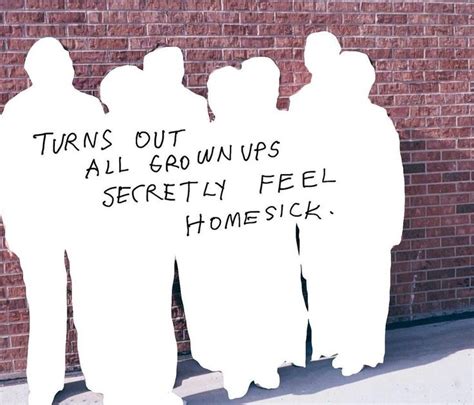 TURNS OUT
ALL GROWNUPS
SECRETLY FEEL
HOMESICK.